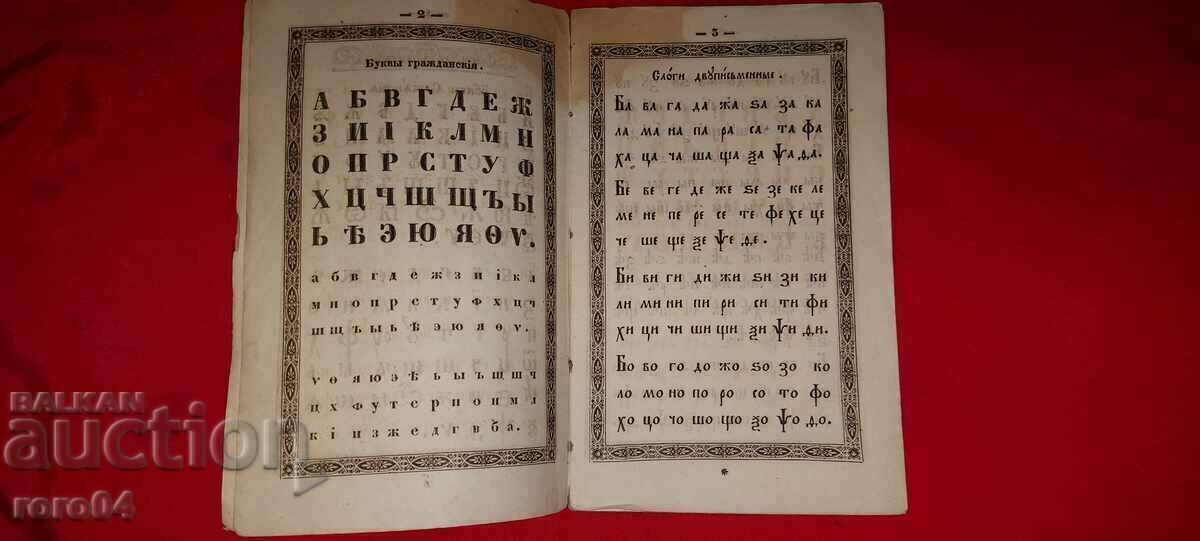 — 2 —
Буквы гражданскія.
А Б В Г Д Е Ж
З И І К Л М Н
О П Р С Т У Ф
Х Ц Ч Ш Щ Ъ Ы
Ь Ѣ Э Ю Я Ѳ Ѵ.
а б в г д е ж з и і к л
м н о п р с т у ф х ц ч
ш щ ъ ы ь ѣ э ю я ѳ ѵ.
ѵ ѳ я ю э ѣ ь ы ъ щ ш ч
ц х ф у т с р п о н м л
к і и з ж е д г в б а.
— 3 —
Сло́ги двупи́сьменные.
Ба ва га да жа ѕа за ка
ла ма на па ра са та фа
ха ца ча ша ща ѯа ѱа ѳа.
Бе ве ге де же ѕе зе ке ле
ме не пе ре се те фе хе це
че ше ще ѯе ѱе ѳе.
Би ви ги ди жи ѕи зи ки
ли ми ни пи ри си ти фи
хи ци чи ши щи ѯи ѱи ѳи.
Бо во го до жо ѕо зо ко
ло мо но по ро со то фо
хо цо чо шо що ѯо ѱо ѳо.
*
BALKAN
auction
roro04